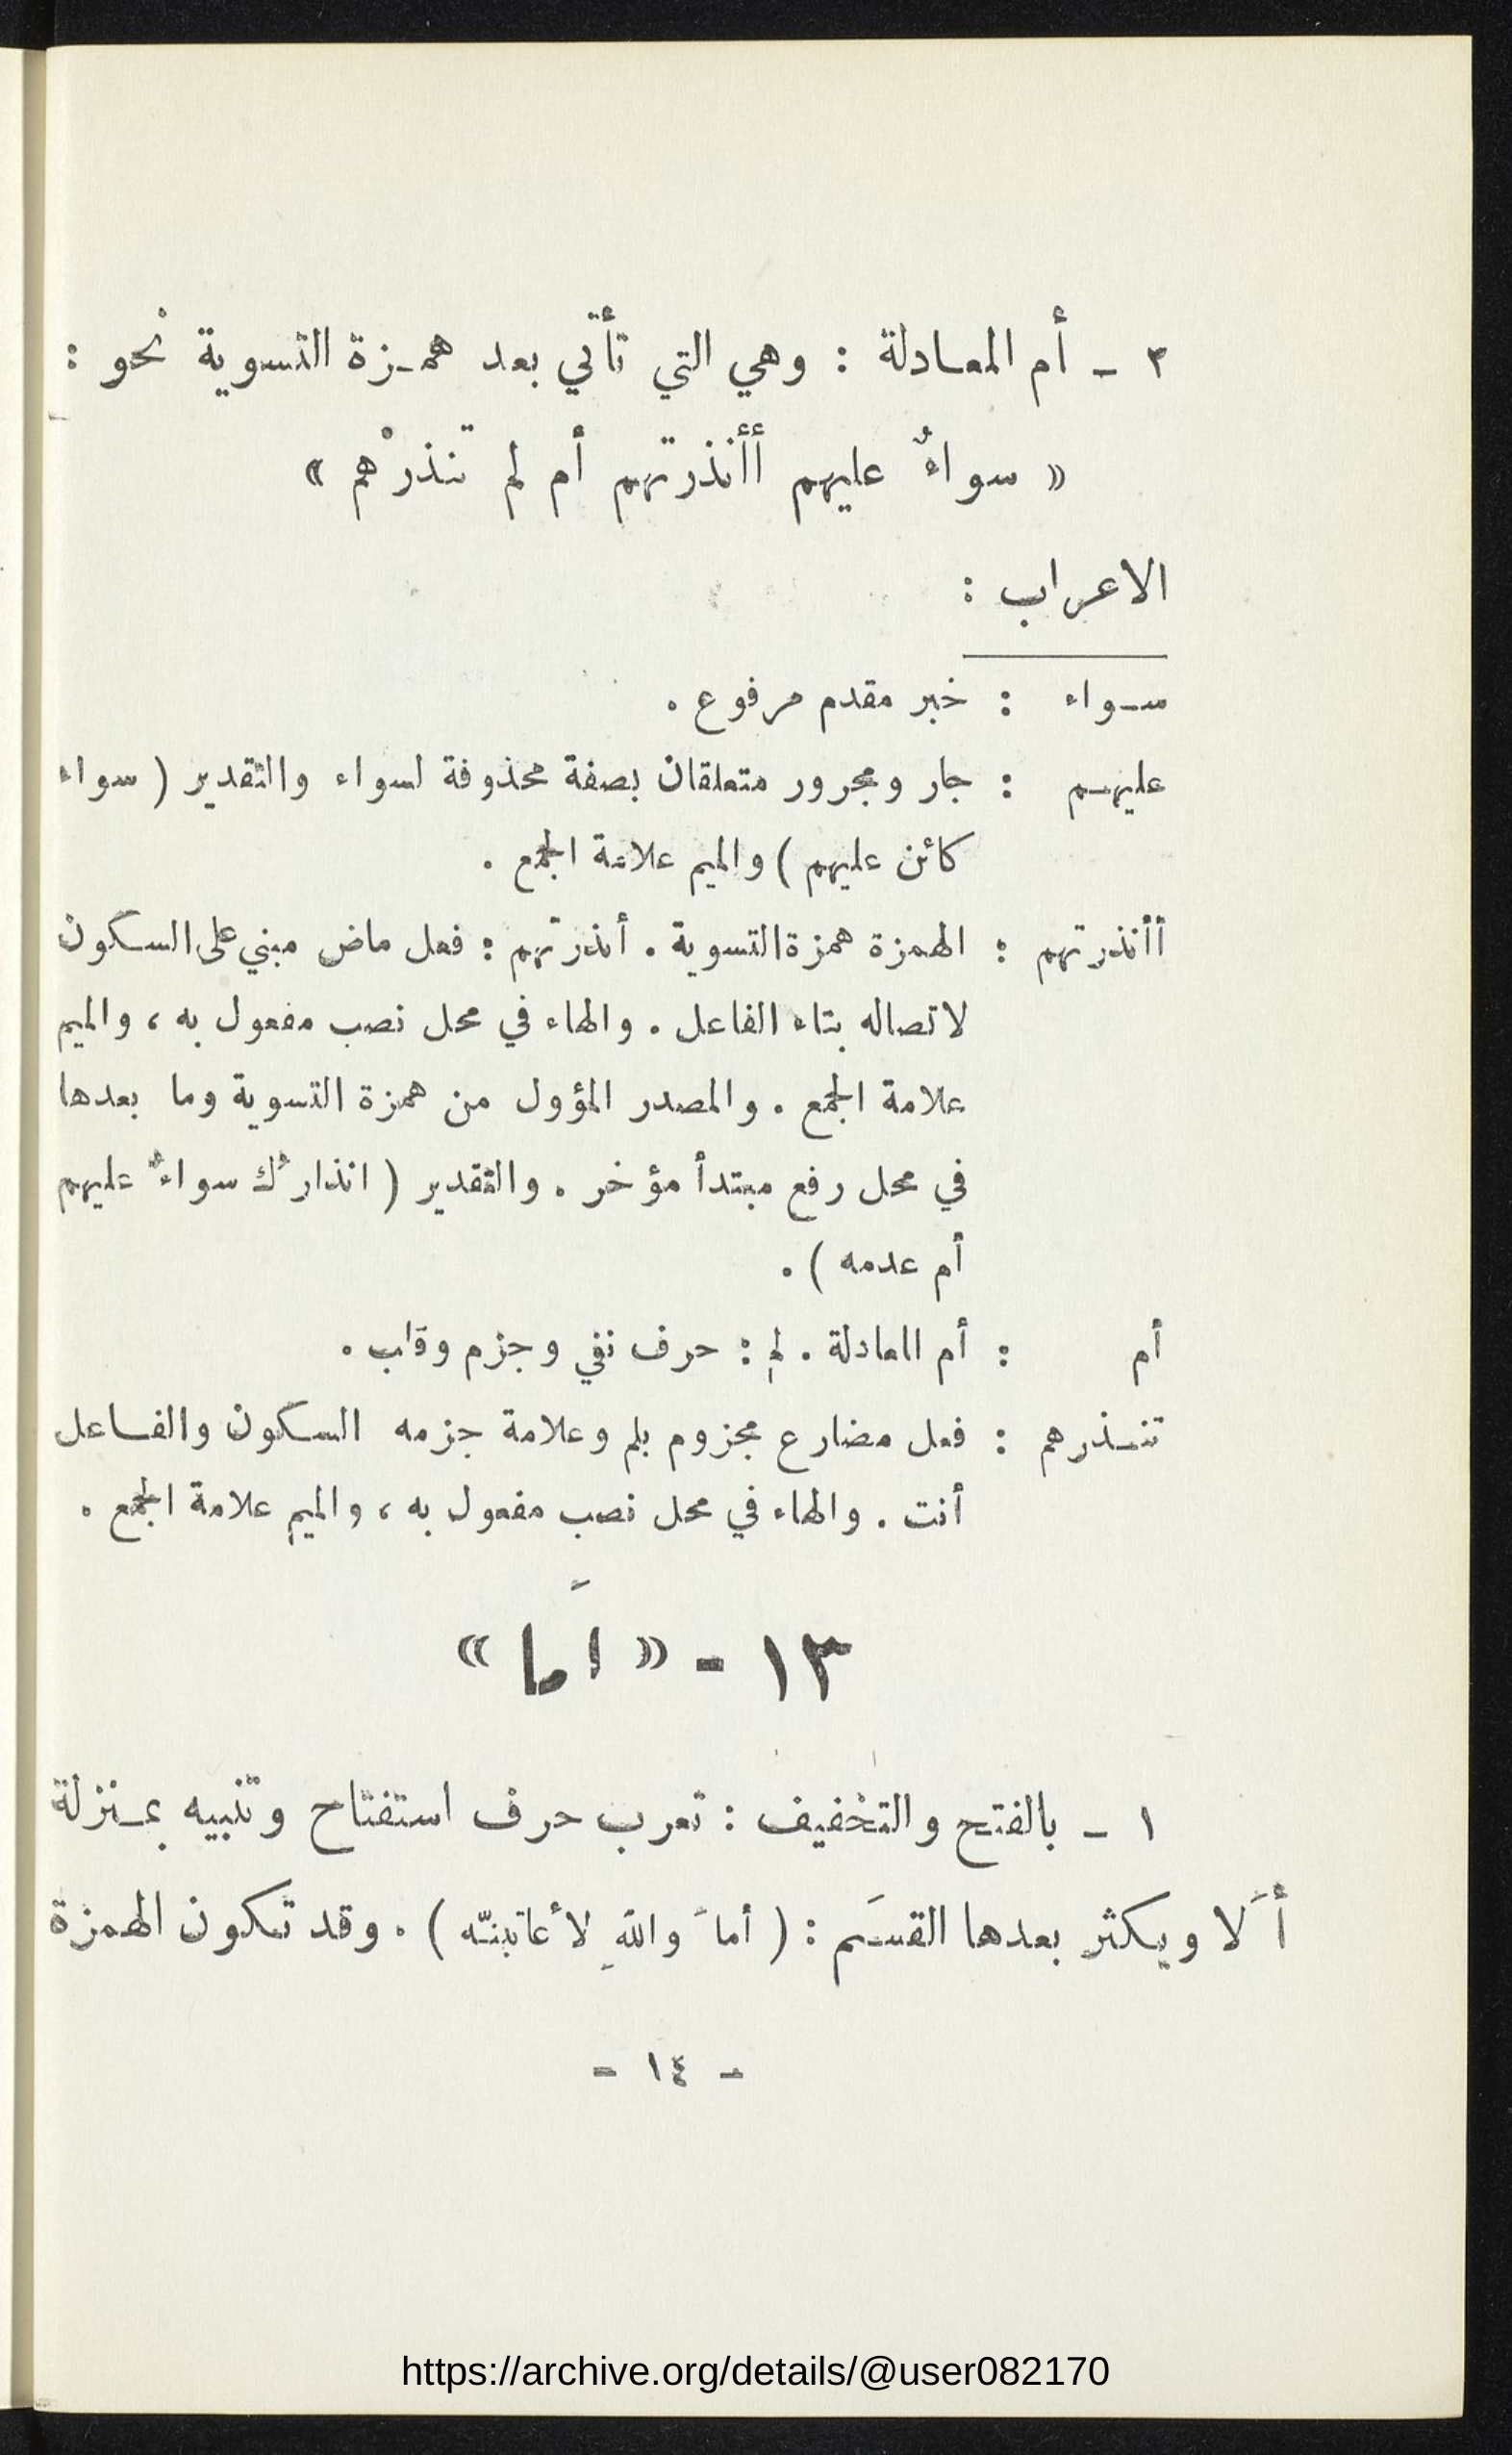 ٣ ـ أم المعادلة : وهي التي تأتي بعد همزة التسوية نحو :
« سواءٌ عليهم أأنذرتهم أم لم تنذرْهم »
الاعراب :
سواء : خبر مقدم مرفوع .
عليهم : جار ومجرور متعلقان بصفة محذوفة لسواء والتقدير ( سواء
كائن عليهم ) والميم علامة الجمع .
أأنذرتهم : الهمزة همزة التسوية . أنذرتهم : فعل ماض مبني على السكون
لاتصاله بتاء الفاعل . والهاء في محل نصب مفعول به ، والميم
علامة الجمع . والمصدر المؤول من همزة التسوية وما بعدها
في محل رفع مبتدأ مؤخر . والتقدير ( انذارُك سواءٌ عليهم
أم عدمه ) .
أم : أم المعادلة . لم : حرف نفي وجزم وقلب .
تنذرهم : فعل مضارع مجزوم بلم وعلامة جزمه السكون والفاعل
أنت . والهاء في محل نصب مفعول به ، والميم علامة الجمع .
١٣ - « اَما »
١ ـ بالفتح والتخفيف : تعرب حرف استفتاح وتنبيه بمنزلة
أَلا ويكثر بعدها القسَم : ( أمَا واللهِ لأعاتبنّه ) . وقد تكون الهمزة
- ١٤ -
https://archive.org/details/@user082170